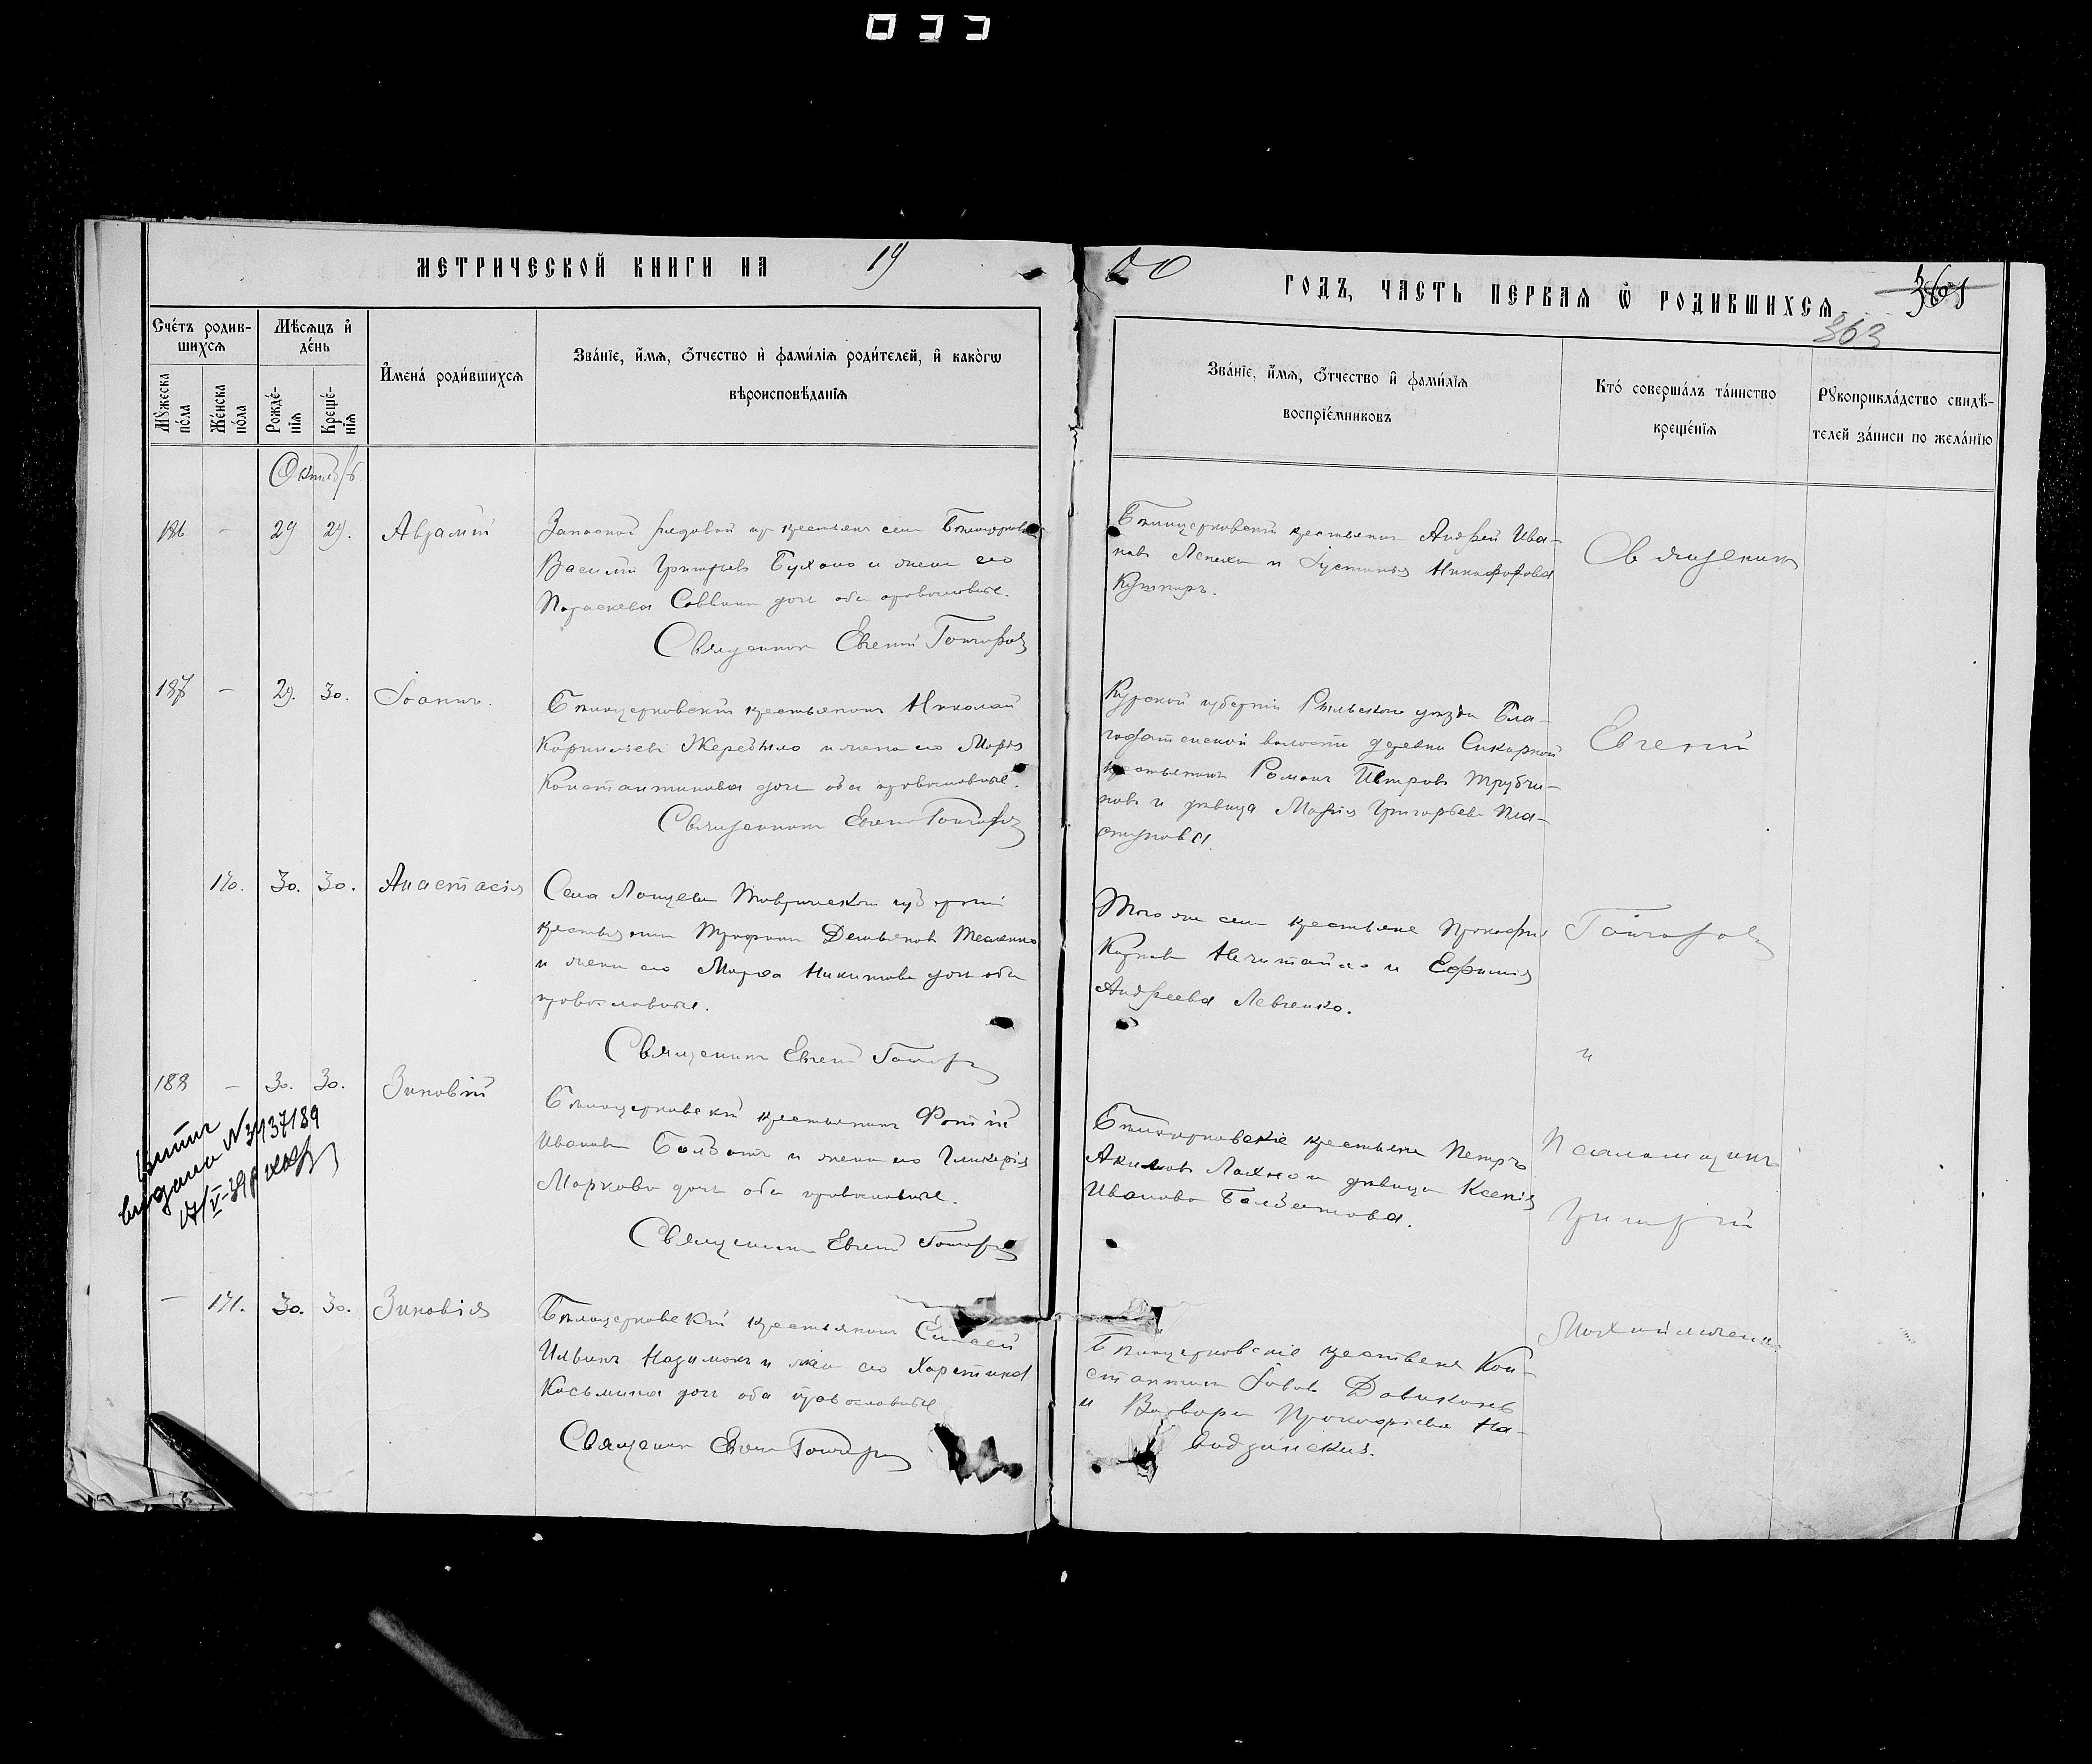 033
МЕТРИЧЕСКОЙ КНИГИ НА 19
00 ГОДЪ, ЧАСТЬ ПЕРВАЯ Ѿ РОДИВШИХСЯ.
363
Счетъ родив-
шихся
Мѣсяцъ и
день
Имена родившихся
Званіе, имя, отчество и фамилія родителей, и какого
вѣроисповѣданія
Мужеска пола
Женска пола
Рожде-
нія
Креще-
нія
Званіе, имя, отчество и фамилія
воспріемниковъ
Кто совершалъ таинство
крещенія
Рукоприкладство свидѣ-
телей записи по желанію
Октябрь
186 - 29 29. Аврамій
Запасной рядовой изъ крестьянъ села
Василій Григорьевъ Бухало и жена его
Параскева Саввина доч оба православные.
Священникъ Евгений Гончаровъ
Бѣлоцерковскій крестьянинъ Андрей Ива-
новъ и Іустинія Никифорова
Кушниръ.
Священникъ
187 - 29. 30. Іоаннъ.
Бѣлоцерковскій крестьянинъ Николай
Корнильевъ Жеребыло и жена его Марія
Константинова доч оба православные.
Священникъ Евгений Гончаровъ
Курской губерніи Рыльскаго уѣзда Бла-
годатенской волости деревни
крестьянинъ Романъ Петровъ Трубчи-
новъ и дѣвица Марія Григорьева Пла-
стунова.
Евгеній
170. 30. 30. Анастасія
Села Таврической губерніи
крестьянинъ Трофимъ Демьяновъ
и жена его Марѳа Никитова доч оба
православные.
Священникъ Евгений Гончаровъ
Того же села крестьяне Прокофій
Карповъ Нечитайло и Ефимія
Андреева Левченко.
Гончаровъ
и
188 - 30. 30. Зиновій
Бѣлоцерковскій крестьянинъ Фотій
Ивановъ Болботъ и жена его Гликерія
Маркова доч оба православные.
Священникъ Евгений Гончаровъ
Бѣлоцерковскіе крестьяне Петръ
Акимовъ Лахно и дѣвица Ксенія
Иванова Болботова.
Псаломщикъ
Григорій
выдано
- 171. 30. 30. Зиновія
Бѣлоцерковскій крестьянинъ Елисей
Ильинъ и жена его Харитина
Косьмина доч оба православные
Священникъ Евгений Гончаровъ
Бѣлоцерковскіе крестьяне Кон-
стантинъ Іововъ
и Варвара Прокофіева На-
Михайличенко